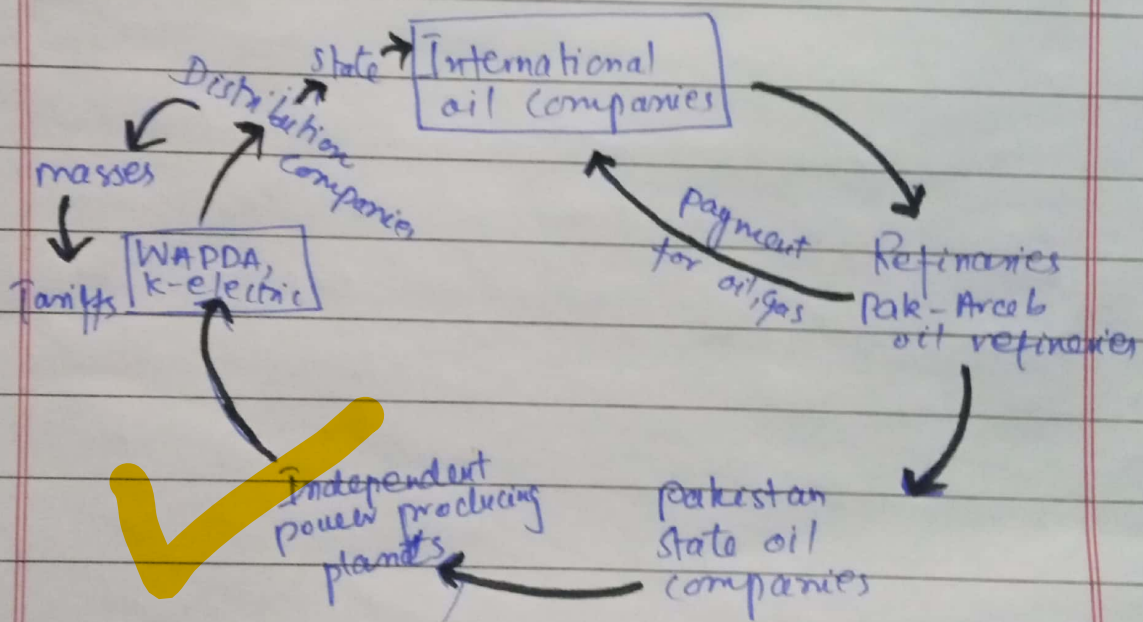 State
International
oil Companies
Distribution
Companies
masses
Tariffs
WAPDA,
K-electric
Payment
for oil, gas
Refinaries
Pak-Arab
oil refineries
Pakistan
State oil
Companies
Independent
power producing
plants